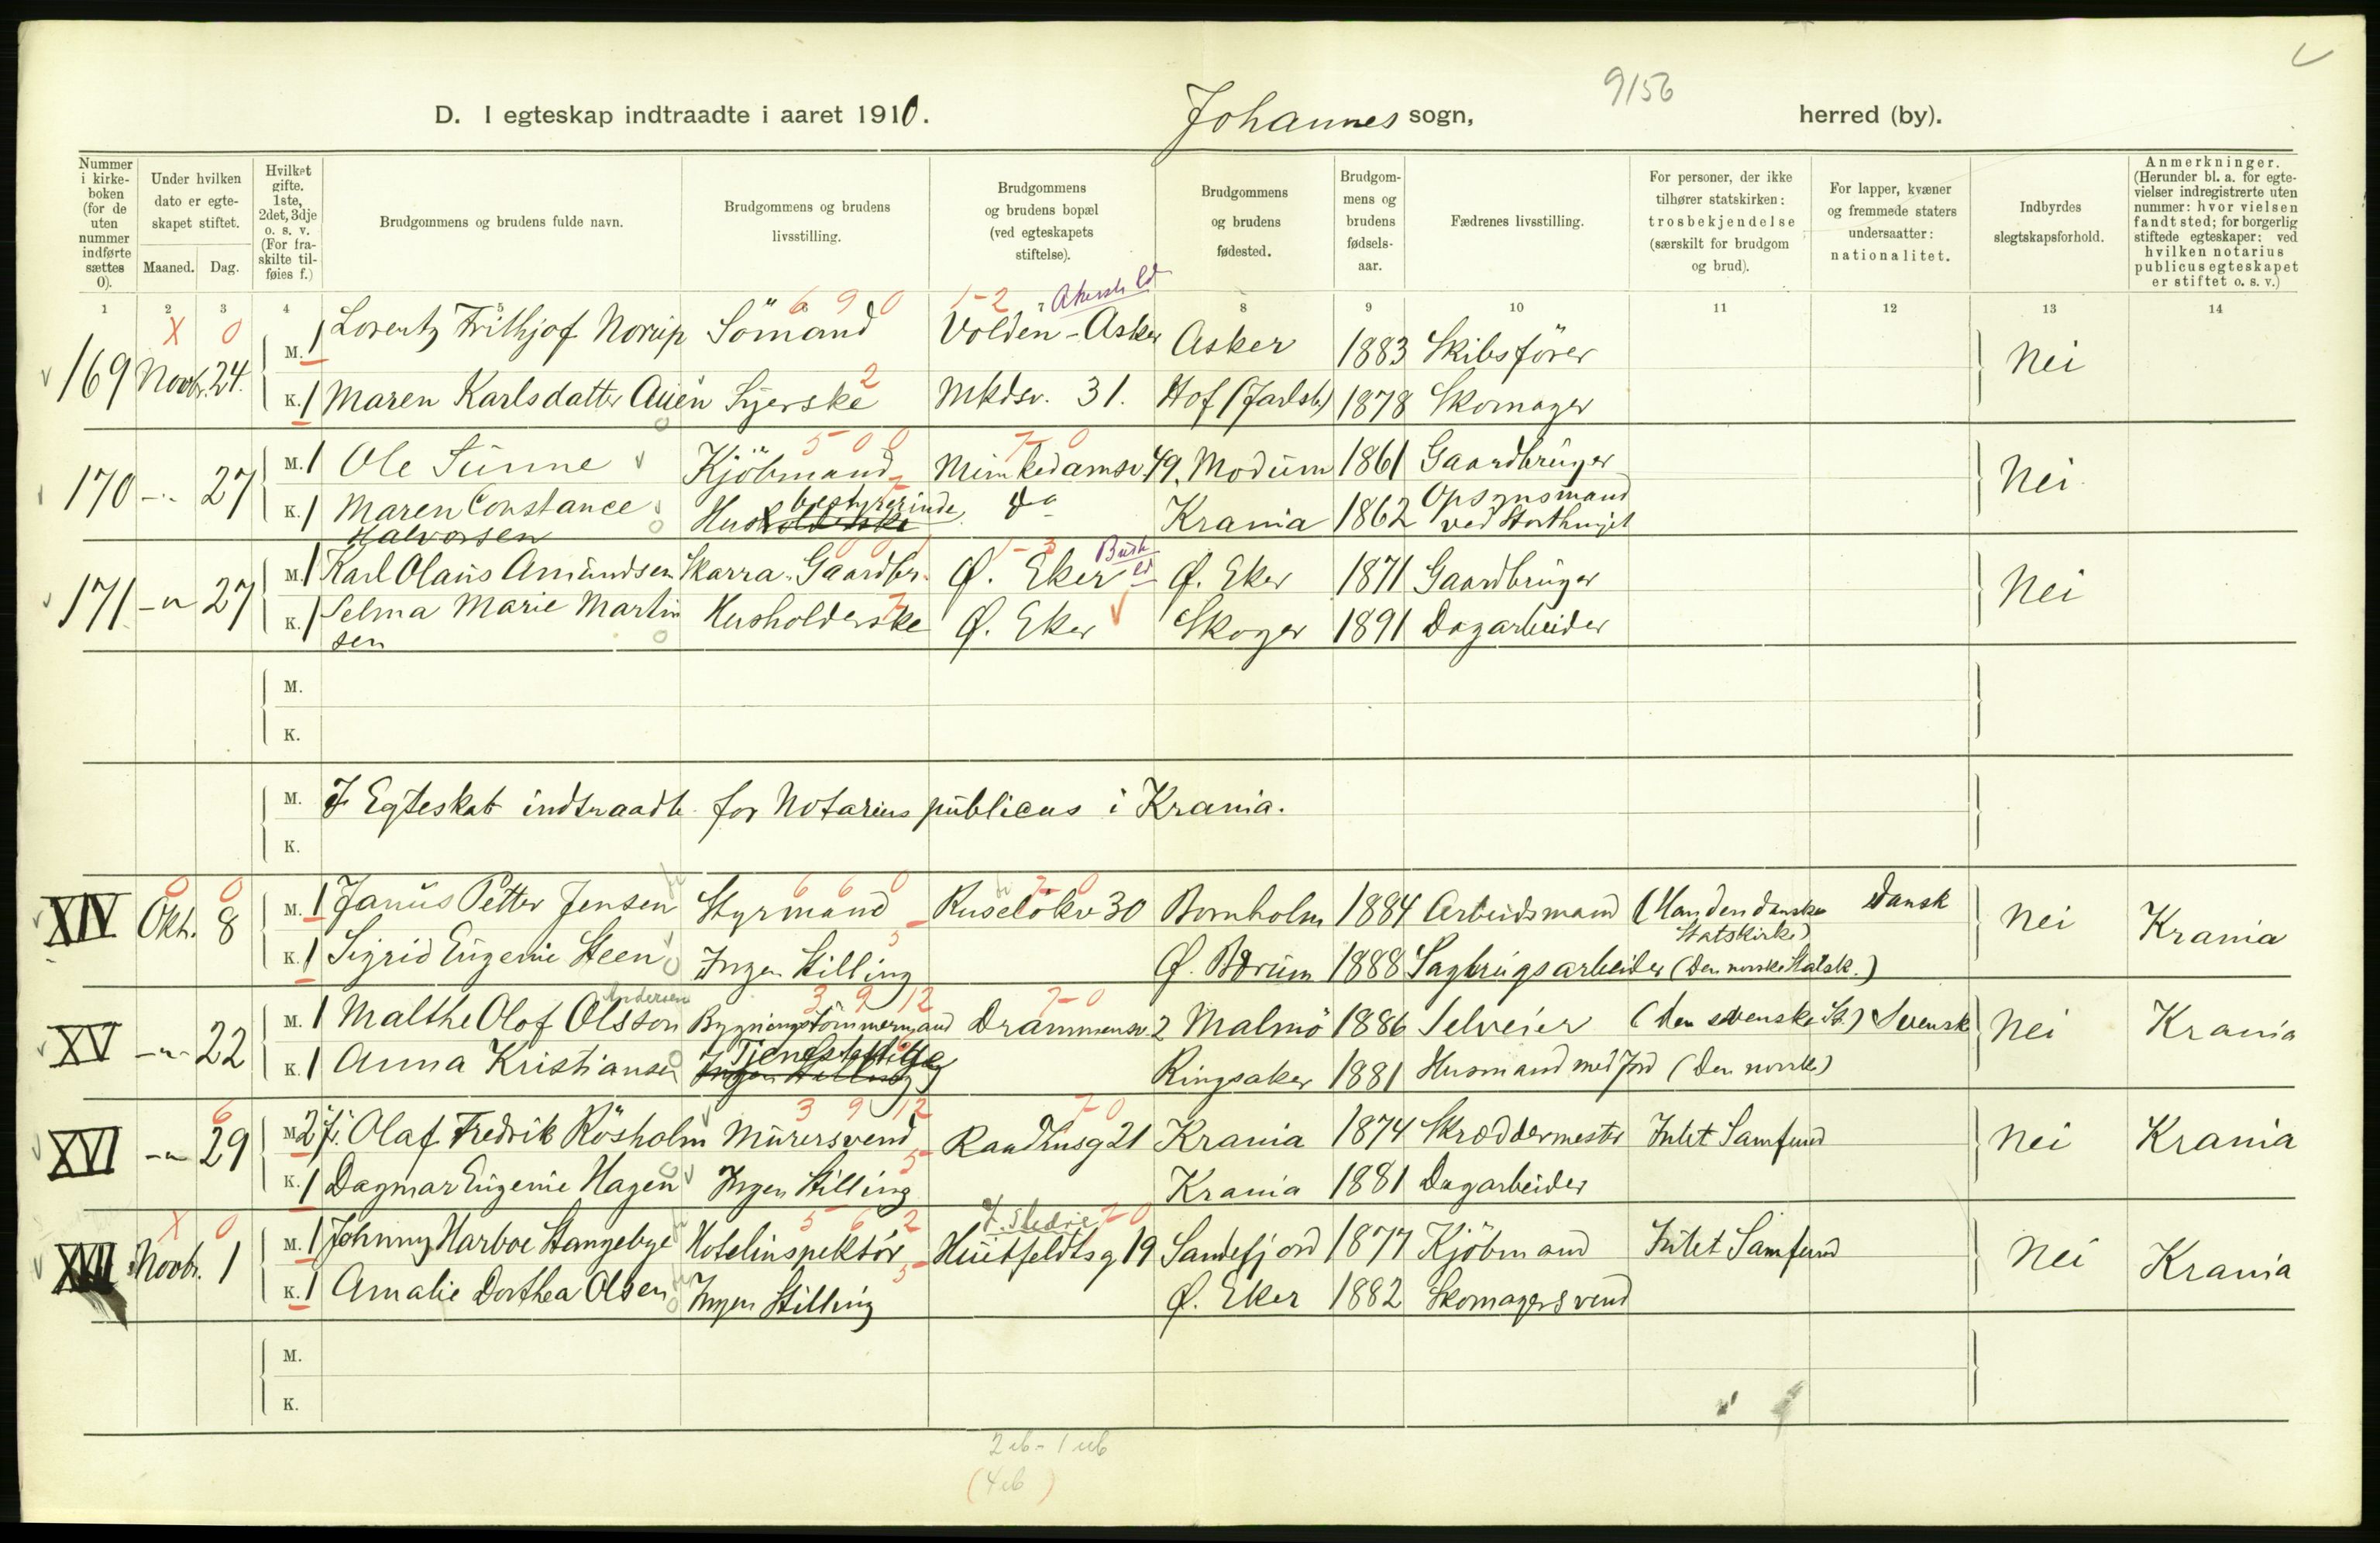 9156
D. I egteskap indtraadte i aaret 1910. Johannes sogn, herred (by).
Nummer i kirkeboken (for de uten nummer indførte sættes 0).
Under hvilken dato er egteskapet stiftet.
Maaned. Dag.
Hvilket gifte. 1ste, 2det, 3dje o. s. v. (For fraskilte tilføies f.)
Brudgommens og brudens fulde navn.
Brudgommens og brudens livsstilling.
Brudgommens og brudens bopæl (ved egteskapets stiftelse).
Brudgommens og brudens fødested.
Brudgommens og brudens fødselsaar.
Fædrenes livsstilling.
For personer, der ikke tilhører statskirken: trosbekjendelse (særskilt for brudgom og brud).
For lapper, kvæner og fremmede staters undersaatter: nationalitet.
Indbyrdes slegtskapsforhold.
Anmerkninger. (Herunder bl. a. for egtevielser indregistrerte uten nummer: hvor vielsen fandt sted; for borgerlig stiftede egteskaper: ved hvilken notarius publicus egteskapet er stiftet o. s. v.)
1 2 3 4 5 6 7 8 9 10 11 12 13 14
X 0 6 9 0 1-2
169 Novbr. 24. M. 1 Lorentz Frithjof Norup Sömand Volden-Asker Asker 1883 Skibsförer Nei
K. 1 Maren Karlsdatter Auen Syerske 2 Mkdsv. 31. Hof (Jarlsb) 1878 Skomager
5 0 0 7-0
170 -"- 27 M. 1 Ole Sunne Kjöbmand Munkedamsv. 49. Modum 1861 Gaardbruger Nei
K. 1 Maren Constance Halvorsen Husbestyrerinde do Krania 1862 Opsynsmand ved Storthinget
1-3 Busk
171 -"- 27 M. 1 Karl Olaus Amundsen Skarra. Gaardbr. Ø. Eker Ø. Eker 1871 Gaardbruger Nei
K. 1 Selma Marie Martinsen Husholderske Ø. Eker Skoger 1891 Dagarbeider
M.
K.
M. I Egteskab indtraadt for Notarius publicus i Krania.
K.
0 0 6 6 0 7-0
XIV Okt. 8 M. 1 Janus Petter Jensen Styrmand Ruselökv 30 Bornholm 1884 Arbeidsmand (Man den danske Statskirke) Dansk Nei Krania
K. 1 Sigrid Eugenie Steen Ingen Stilling Ø. Bærum 1888 Sagbrugsarbeider (Den norske Statsk.)
Andersen 3 9 12 7-0
XV -"- 22 M. 1 Malthe Olof Olsson Bygningstömmermand Drammensv. 2 Malmö 1886 Selveier (den svenske St.) Svensk Nei Krania
K. 1 Anna Kristiansen Ingen Stilling Ringsaker 1881 Husmand med Jord (Den norske)
6 3 9 12 7 0
XVI -"- 29 M. 2 f. Olaf Fredrik Rösholm Murersvend Raadhusg 21 Krania 1874 Skræddermester Intet Samfund Nei Krania
K. 1 Dagmar Eugenie Hagen Ingen Stilling Krania 1881 Dagarbeider
X 0 5 6 2 7 0
XVII Novbr. 1 M. 1 Johnny Harboe Stangebye Hotelinspektör Huitfeldtsg 19 Sandefjord 1877 Kjöbmand Intet Samfund Nei Krania
K. 1 Amalie Dorthea Olsen Ingen Stilling Ø. Eker 1882 Skomagersvend
M.
K.
2 ib - 1 ub
(4 ib)